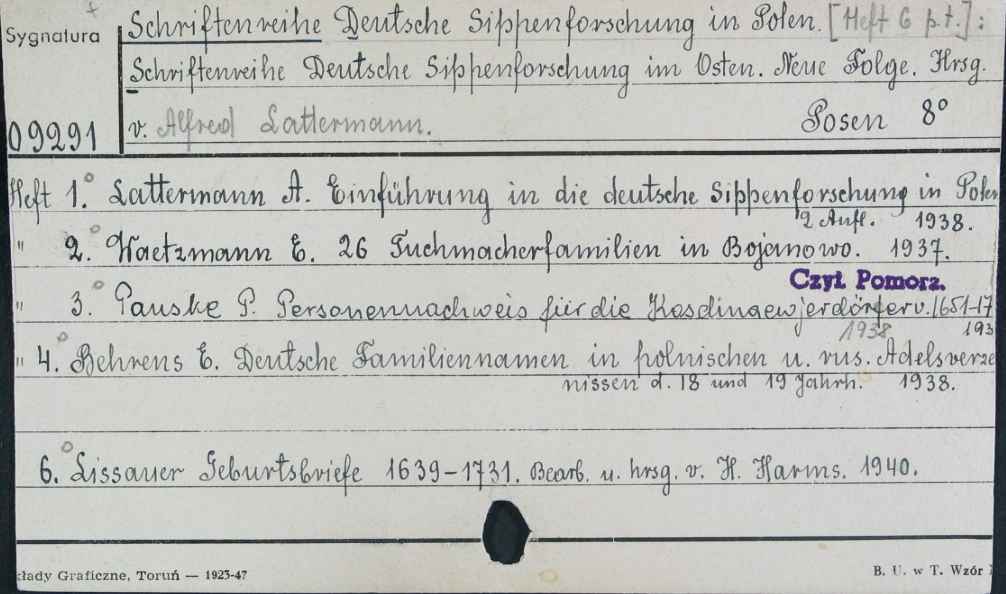 Sygnatura
09291
Schriftenreihe Deutsche Sippenforschung in Polen. [Heft 6 p.t.]:
Schriftenreihe Deutsche Sippenforschung im Osten. Neue Folge. Hrsg.
v. Alfred Lattermann. Posen 8°
Heft 1. Lattermann A. Einführung in die deutsche Sippenforschung in Polen
2 Aufl. 1938.
" 2. Waetzmann E. 26 Tuchmacherfamilien in Bojanowo. 1937.
Czyt. Pomorz.
" 3. Pauske P. Personennachweis für die v. 1651-17
1938 193
" 4. Behrens E. Deutsche Familiennamen in polnischen u. rus. Adelsverze
nissen d. 18 und 19 Jahrh. 1938.
6. Lissauer Geburtsbriefe 1639-1731. Bearb. u. hrsg. v. H. Harms. 1940.
kłady Graficzne, Toruń — 1923-47
B. U. w T. Wzór